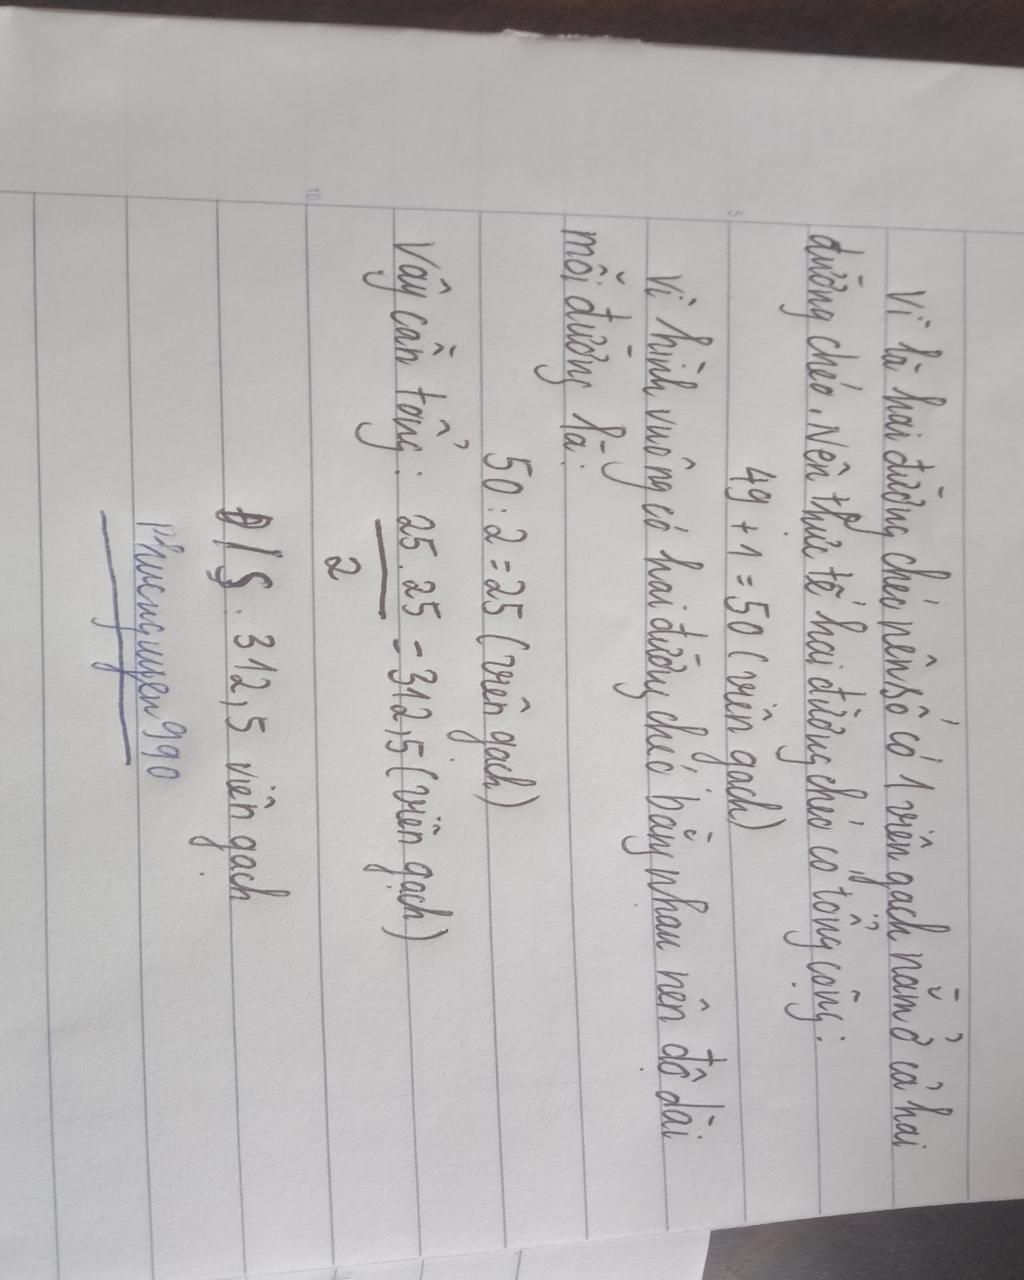 Vì là hai đường chéo nên số có 1 viên gạch nằm ở cả hai
đường chéo. Nên thực tế hai đường chéo có tổng cộng:
5
49 + 1 = 50 (viên gạch)
Vì hình vuông có hai đường chéo bằng nhau nên độ dài
mỗi đường là:
50 : 2 = 25 (viên gạch)
Vậy cần tổng: 25.25 = 312,5 (viên gạch)
2
10
Đ/S: 312,5 viên gạch
Phucnguyen990